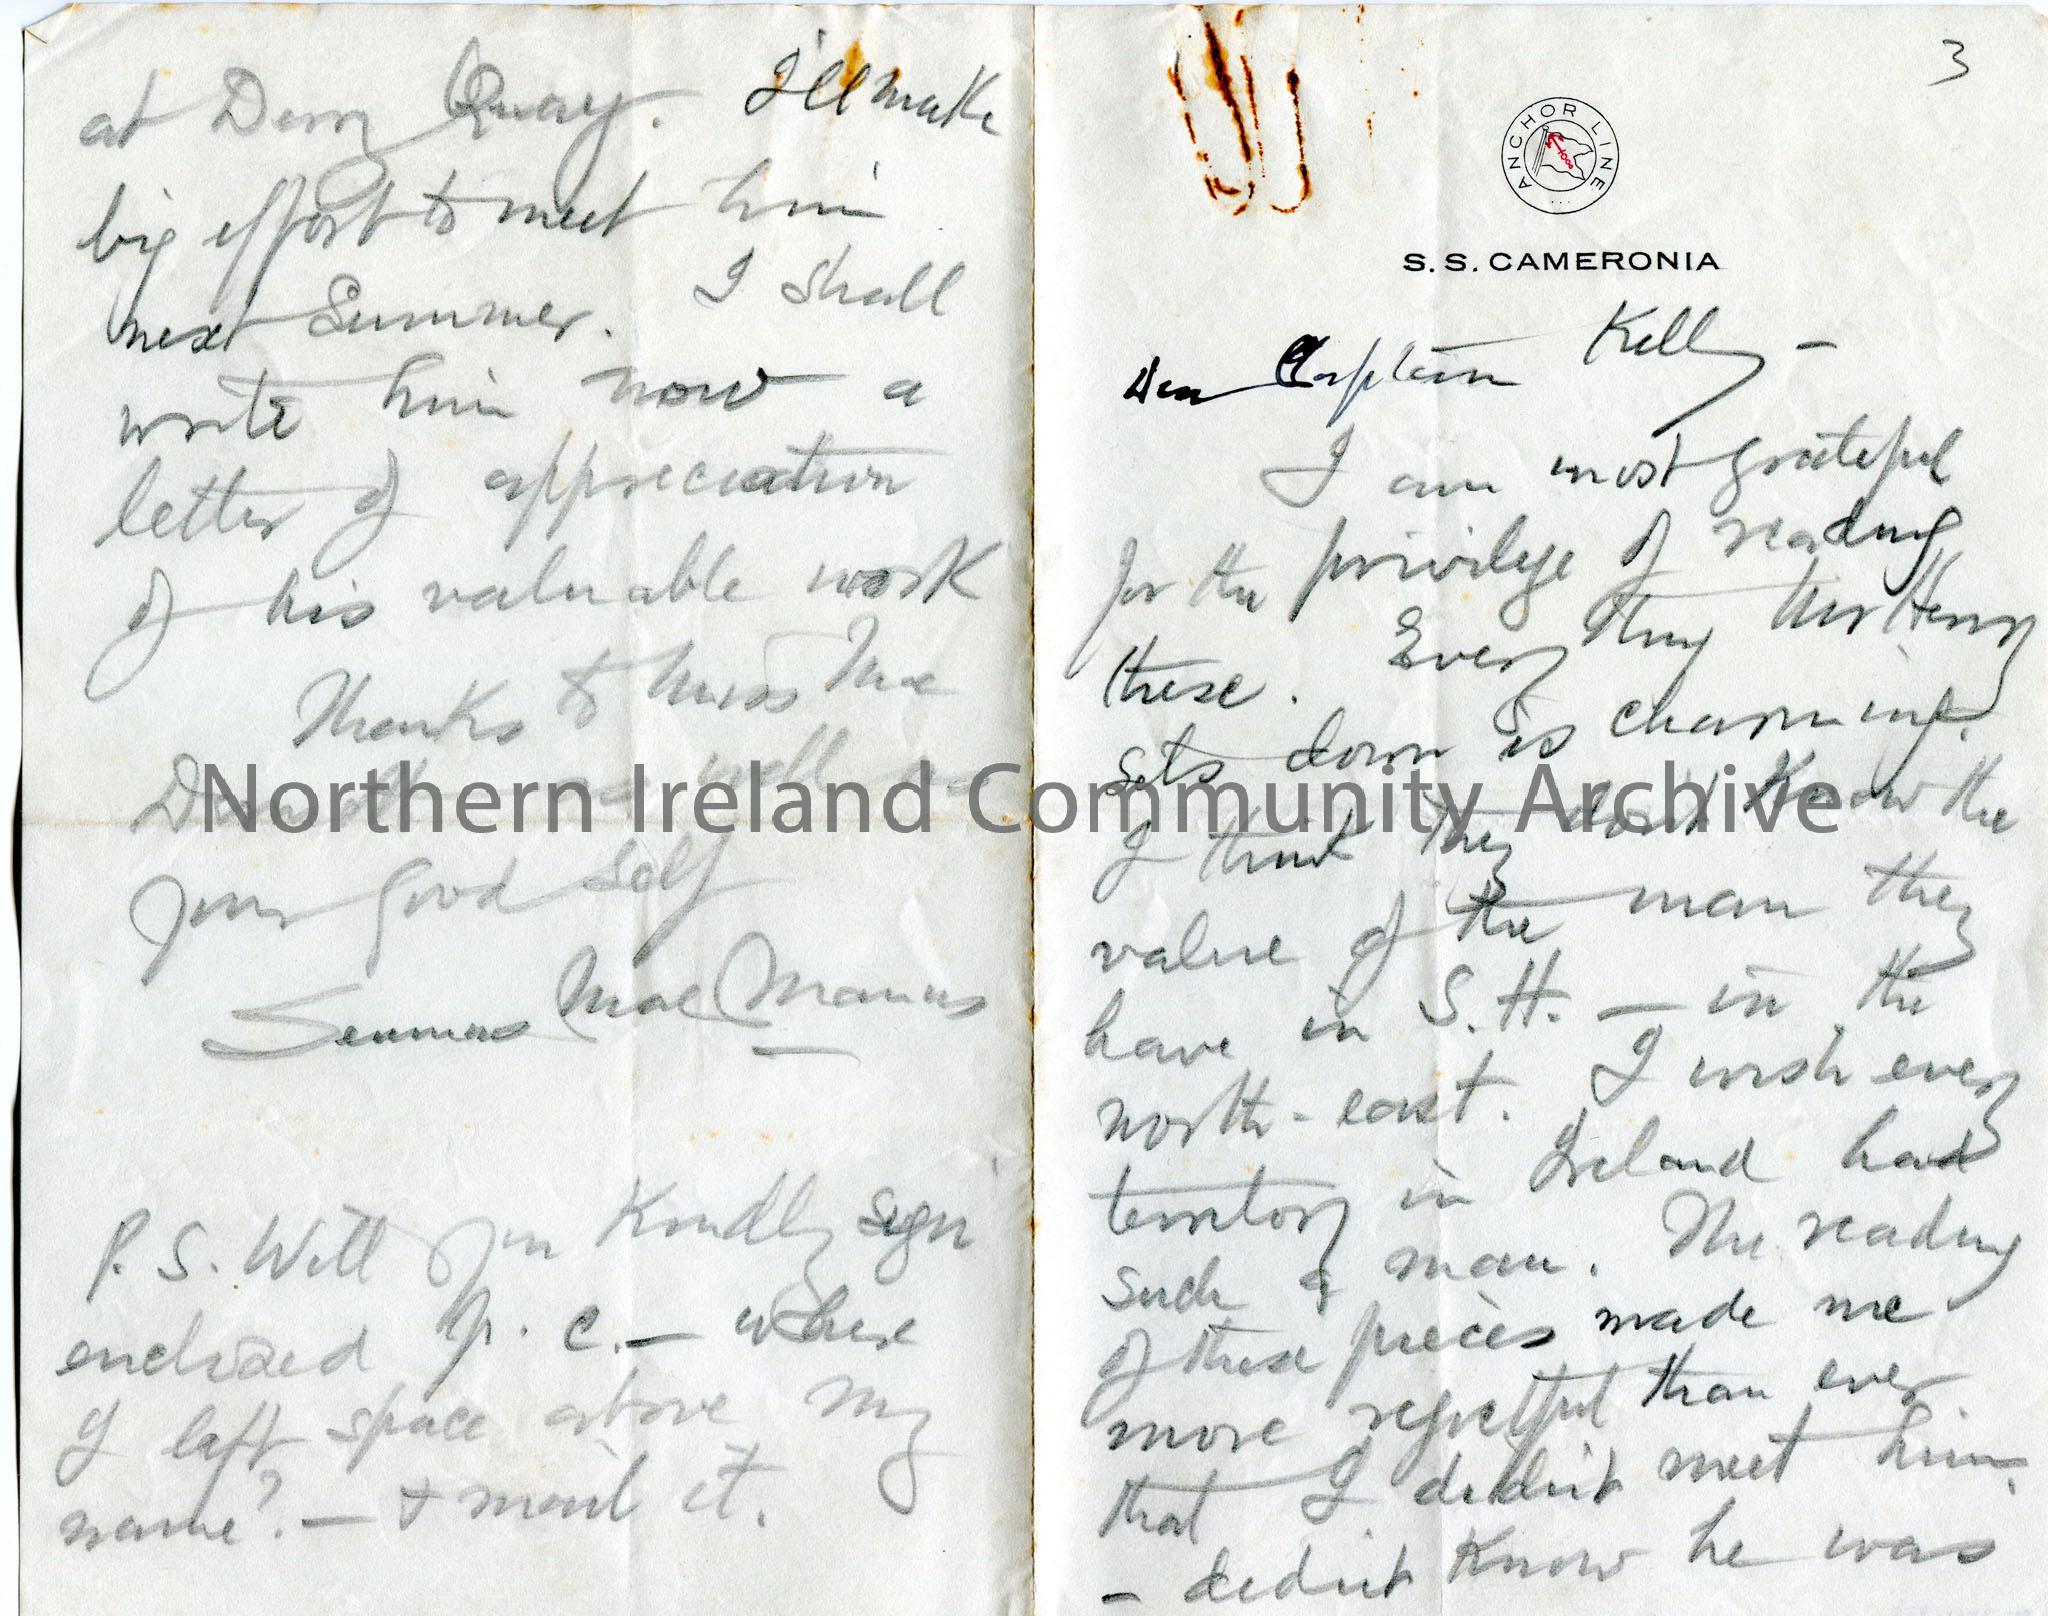 3
ANCHOR LINE
S.S. CAMERONIA
Dear Captain Kelly –
I am most grateful
for the privilege of reading
these. Every thing Mr Henry
sets down is charming.
I think they don't know the
value of the man they
have in S.H. – in the
north-east. I wish every
territory in Ireland had
such a man. The reading
of these pieces made me
more regretful than ever
that I didn't meet him
– didn't know he was
at Derry Quay. I'll make
big effort to meet him
next Summer. I shall
write him now a
letter of appreciation
of his valuable work
Thanks to Miss Mac
as well as
your good self
Seumas MacManus
P.S. Will you kindly sign
enclosed p.c. – where
I left space above my
name? – & mail it.
Northern Ireland Community Archive